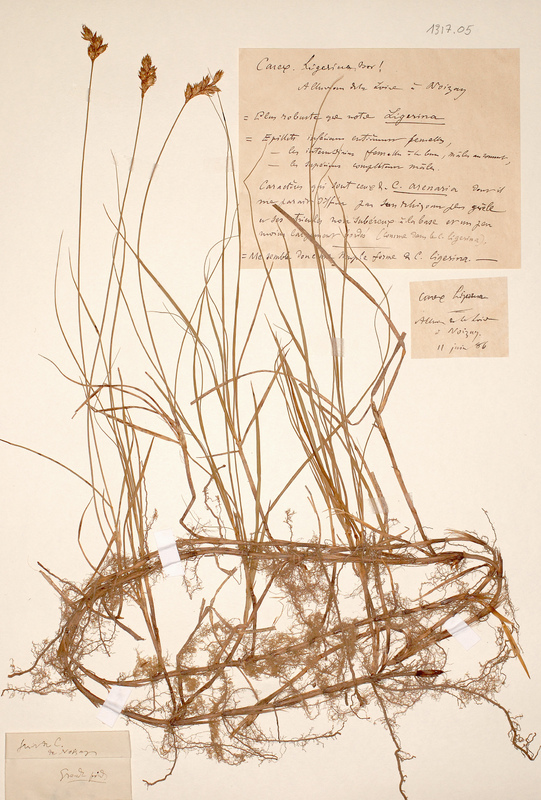 1317.05
Carex Ligerina, Bor!
Alluvions de la Loire à Noizay
= Plus robuste que notre Ligerina
= Epillets inférieurs entièrement femelles,
— les intermédiaires femelles à la base, mâles au sommet,
— les supérieurs complètement mâles.
Caractères qui sont ceux de C. arenaria dont il
me paraît différer par son rhizome plus grêle
et ses utricules non subéreux à la base et un peu
moins largement (comme dans le C. ligerina).
= Me semble donc une simple forme de C. ligerina. —
Carex ligerina
Alluv. de la Loire
à Noizay
11 juin 86
C.
de Noizay
Grand